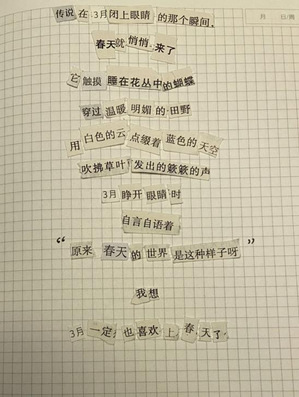 月 日/周
传说在3月闭上眼睛的那个瞬间，
春天就悄悄来了
它触摸睡在花丛中的蝴蝶
穿过温暖明媚的田野
用白色的云点缀着蓝色的天空
吹拂草叶发出的簌簌的声
3月睁开眼睛时
自言自语着
“原来春天的世界是这种样子呀”
我想
3月一定也喜欢上春天了